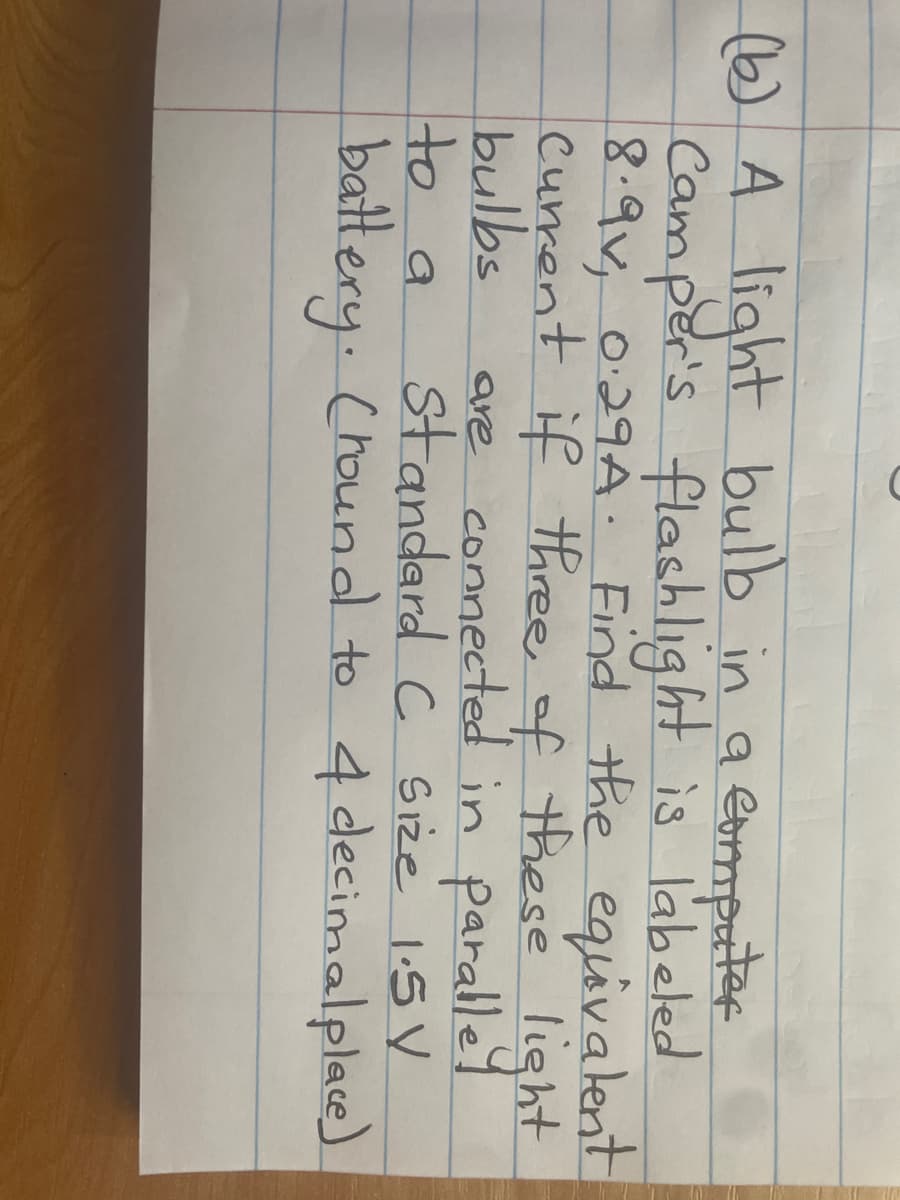 (b) A light bulb in a computer
Camper's flashlight is labeled
8.9V, 0.29A. Find the equivalent
current if three of these light
bulbs are connected in parallel
to a standard C size 1.5 V
battery. (round to 4 decimal place)